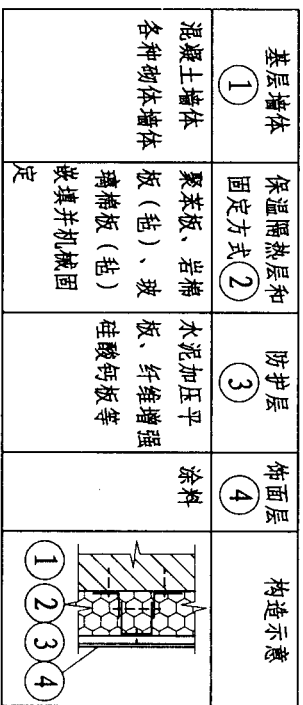 基层墙体
①
保温隔热层和
固定方式②
防护层
③
饰面层
④
构造示意
混凝土墙体
各种砌体墙体
聚苯板、岩棉
板（毡）、玻
璃棉板（毡）
嵌填并机械固
定
水泥加压平
板、纤维增强
硅酸钙板等
涂料
①②③④